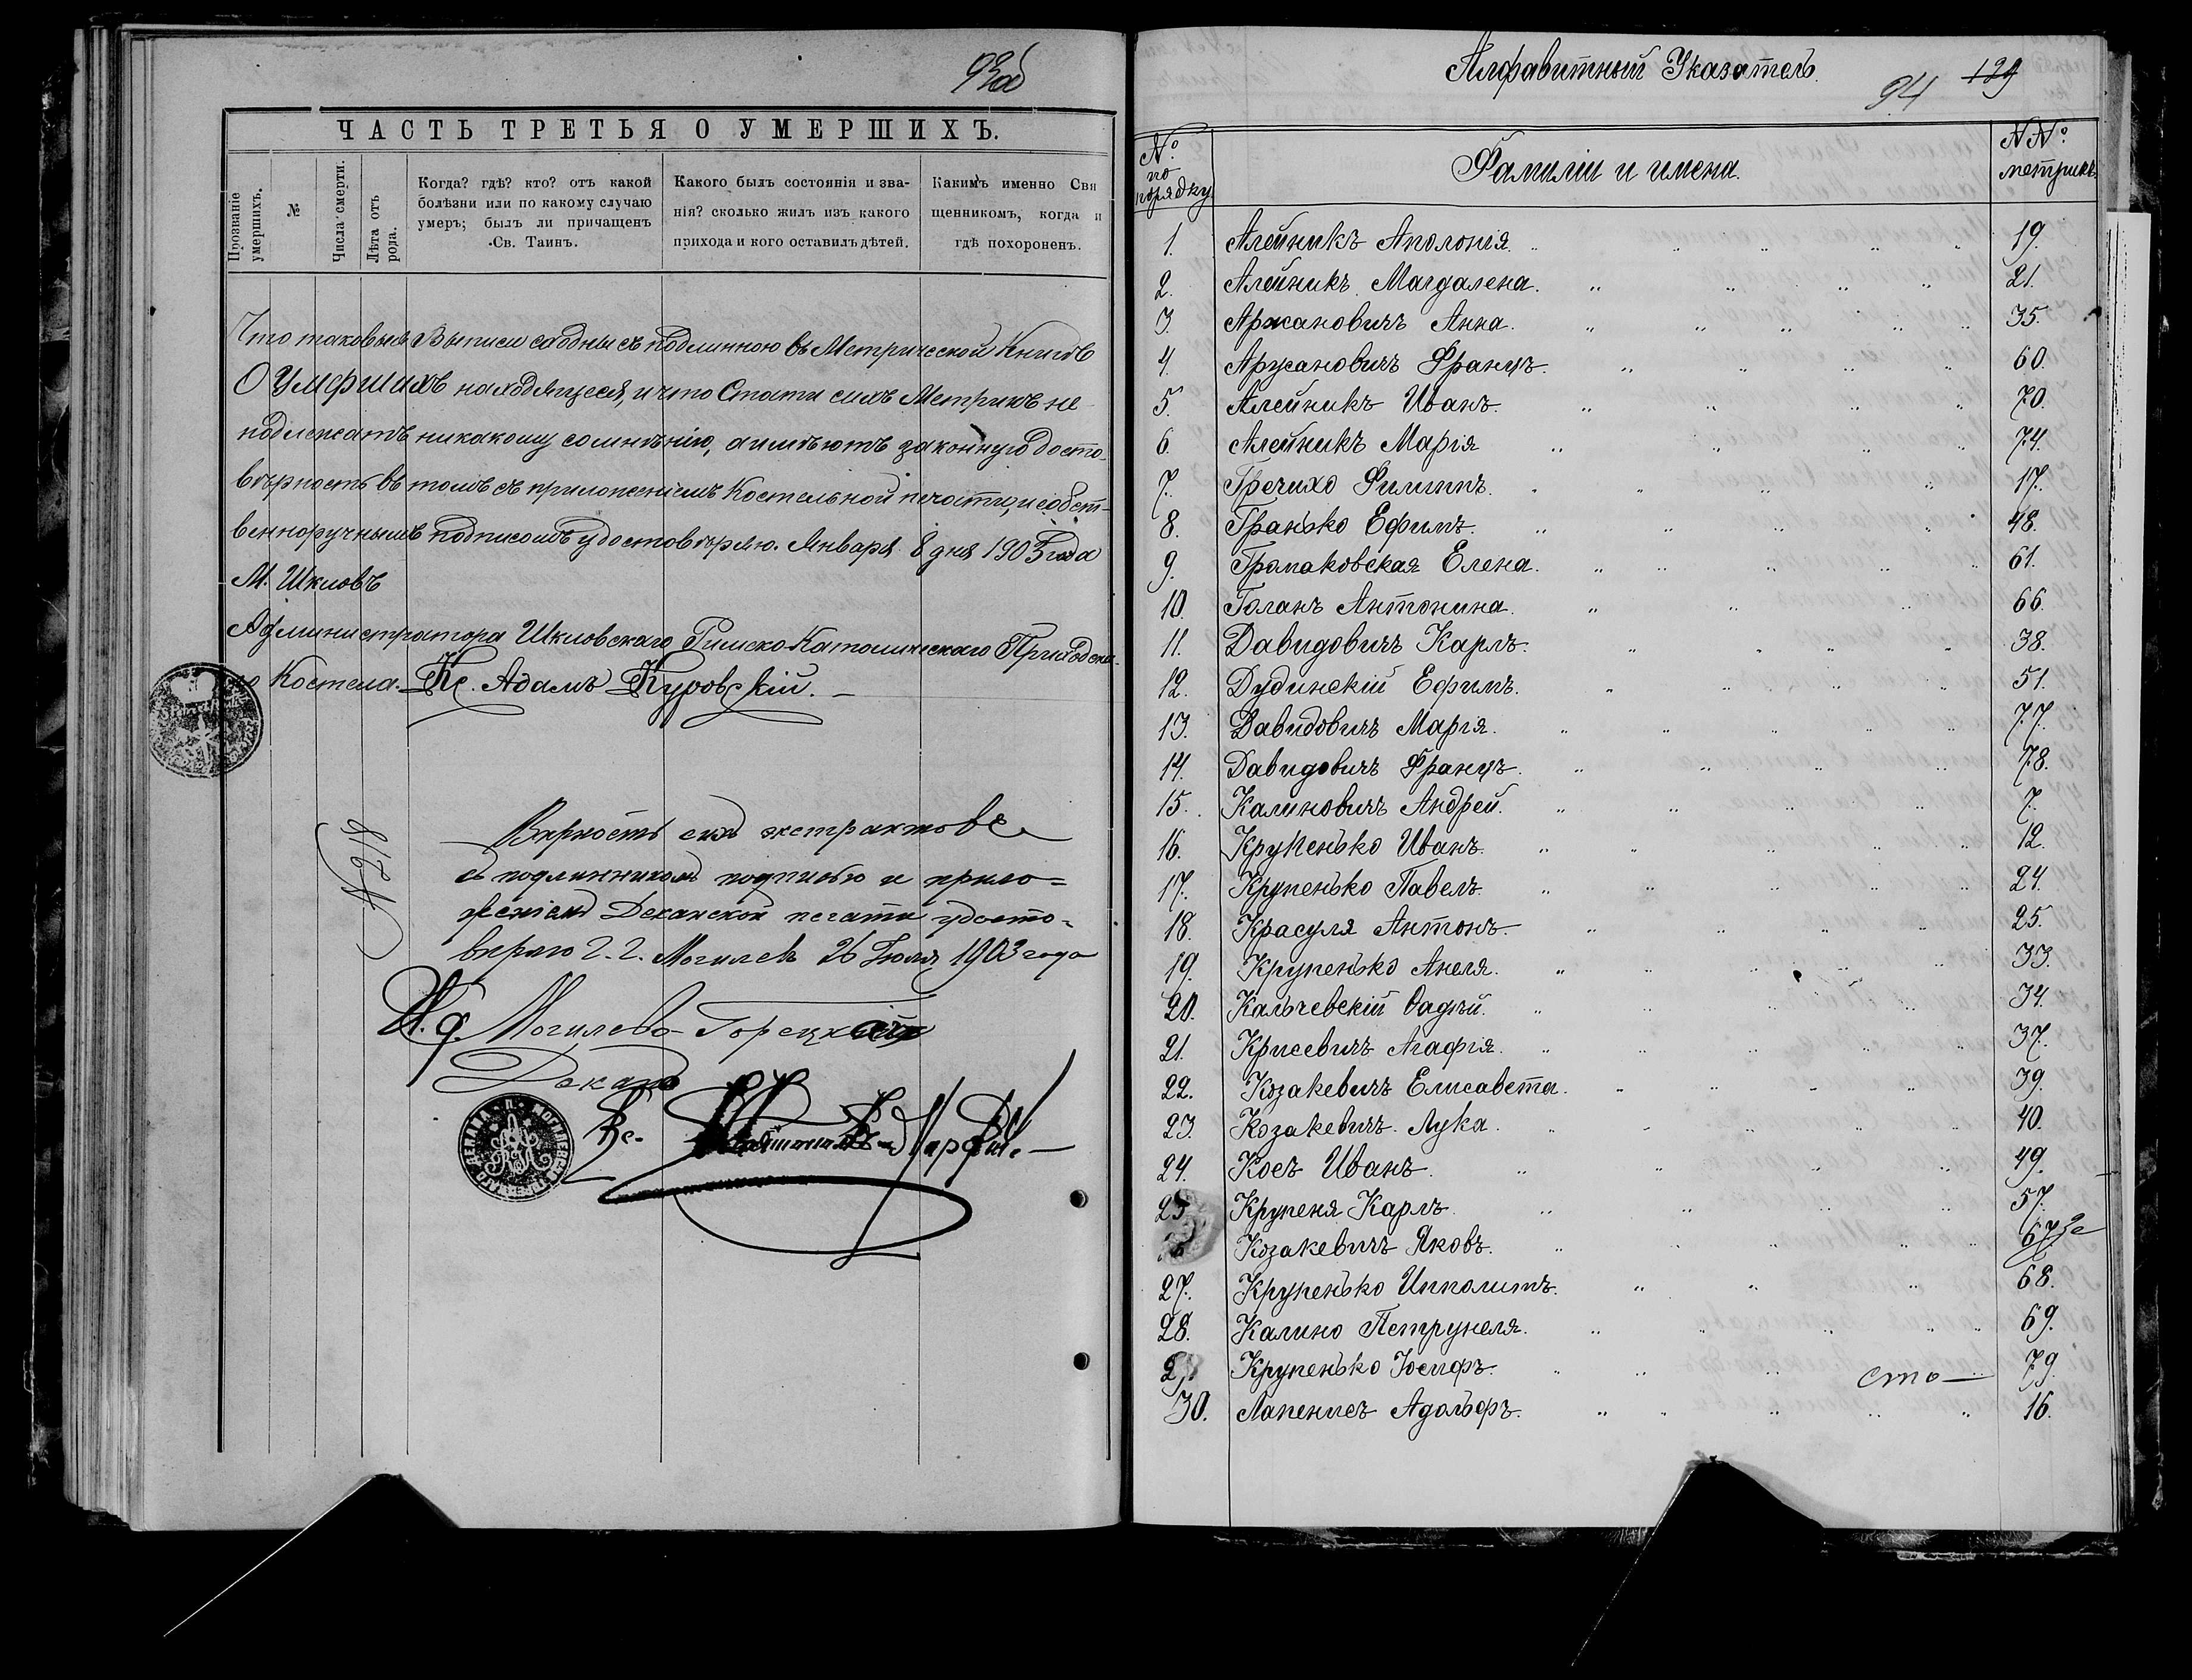 93об
ЧАСТЬ ТРЕТЬЯ О УМЕРШИХЪ.
Прозваніе умершихъ.
№
Числа смерти.
Лѣта отъ рода.
Когда? гдѣ? кто? отъ какой
болѣзни или по какому случаю
умеръ; былъ ли причащенъ
Св. Таинъ.
Какого былъ состоянія и зва-
нія? сколько жилъ изъ какого
прихода и кого оставилъ дѣтей.
Какимъ именно Свя
щенникомъ, когда и
гдѣ похороненъ.
Что таковыя Выписи сходны съ подлинною въ Метрической Книгѣ
О Умершихъ находящееся, и что Стати сихъ Метрикъ не
подлежатъ никакому сомнѣнію, а имѣютъ законную досто-
вѣрность въ томъ съ приложеніемъ Костельной печати, и собст-
венноручнымъ подписомъ удостовѣряю. Января 8 дня 1903 года
М. Шкловъ
Администратора Шкловскаго Римско-Католическаго Приходска-
го Костела. Кс. Адамъ Куровскій.
№ 218
Вѣрность сихъ экстрактовъ
съ подлинникомъ подписью и прило=
женіемъ Деканской печати удосто-
вѣряю г. г. Могилевъ 26 Іюля 1903 года
И. д. Могилево-Горецкій
Деканъ
Кс.
Алфавитный Указатель.
94 129
№ по порядку
Фамиліи и имена.
№№ метрикъ.
1. Алейникъ Аполонія. 19.
2. Алейникъ Магдалена. 21.
3. Аржановичъ Анна. 35.
4. Аржановичъ Францъ. 60.
5. Алейникъ Иванъ. 70.
6. Алейникъ Марія 74.
7. Гречихо Филиппъ. 17.
8. Гранько Ефимъ. 48.
9. Громаковская Елена. 61.
10. Голанъ Антонина. 66.
11. Давидовичъ Карлъ. 38.
12. Дудинскій Ефимъ. 51.
13. Давидовичъ Марія. 77.
14. Давидовичъ Францъ. 78.
15. Калиновичъ Андрей. 7.
16. Крупенько Иванъ. 12.
17. Крупенько Павелъ. 24.
18. Красуля Антонъ. 25.
19. Крупенько Анеля. 33.
20. Кальчевскій Фадѣй. 34.
21. Крисевичъ Агафія. 37.
22. Козакевичъ Елисавета. 39.
23. Козакевичъ Лука. 40.
24. Косъ Иванъ. 49.
25 Крупеня Карлъ. 57.
Козакевичъ Яковъ. 67
27. Крупенько Ипполитъ. 68.
28. Калино Петрунеля. 69.
29 Крупенько Іосифъ. 79.
сто
30. Лапенисъ Адольфъ. 16.